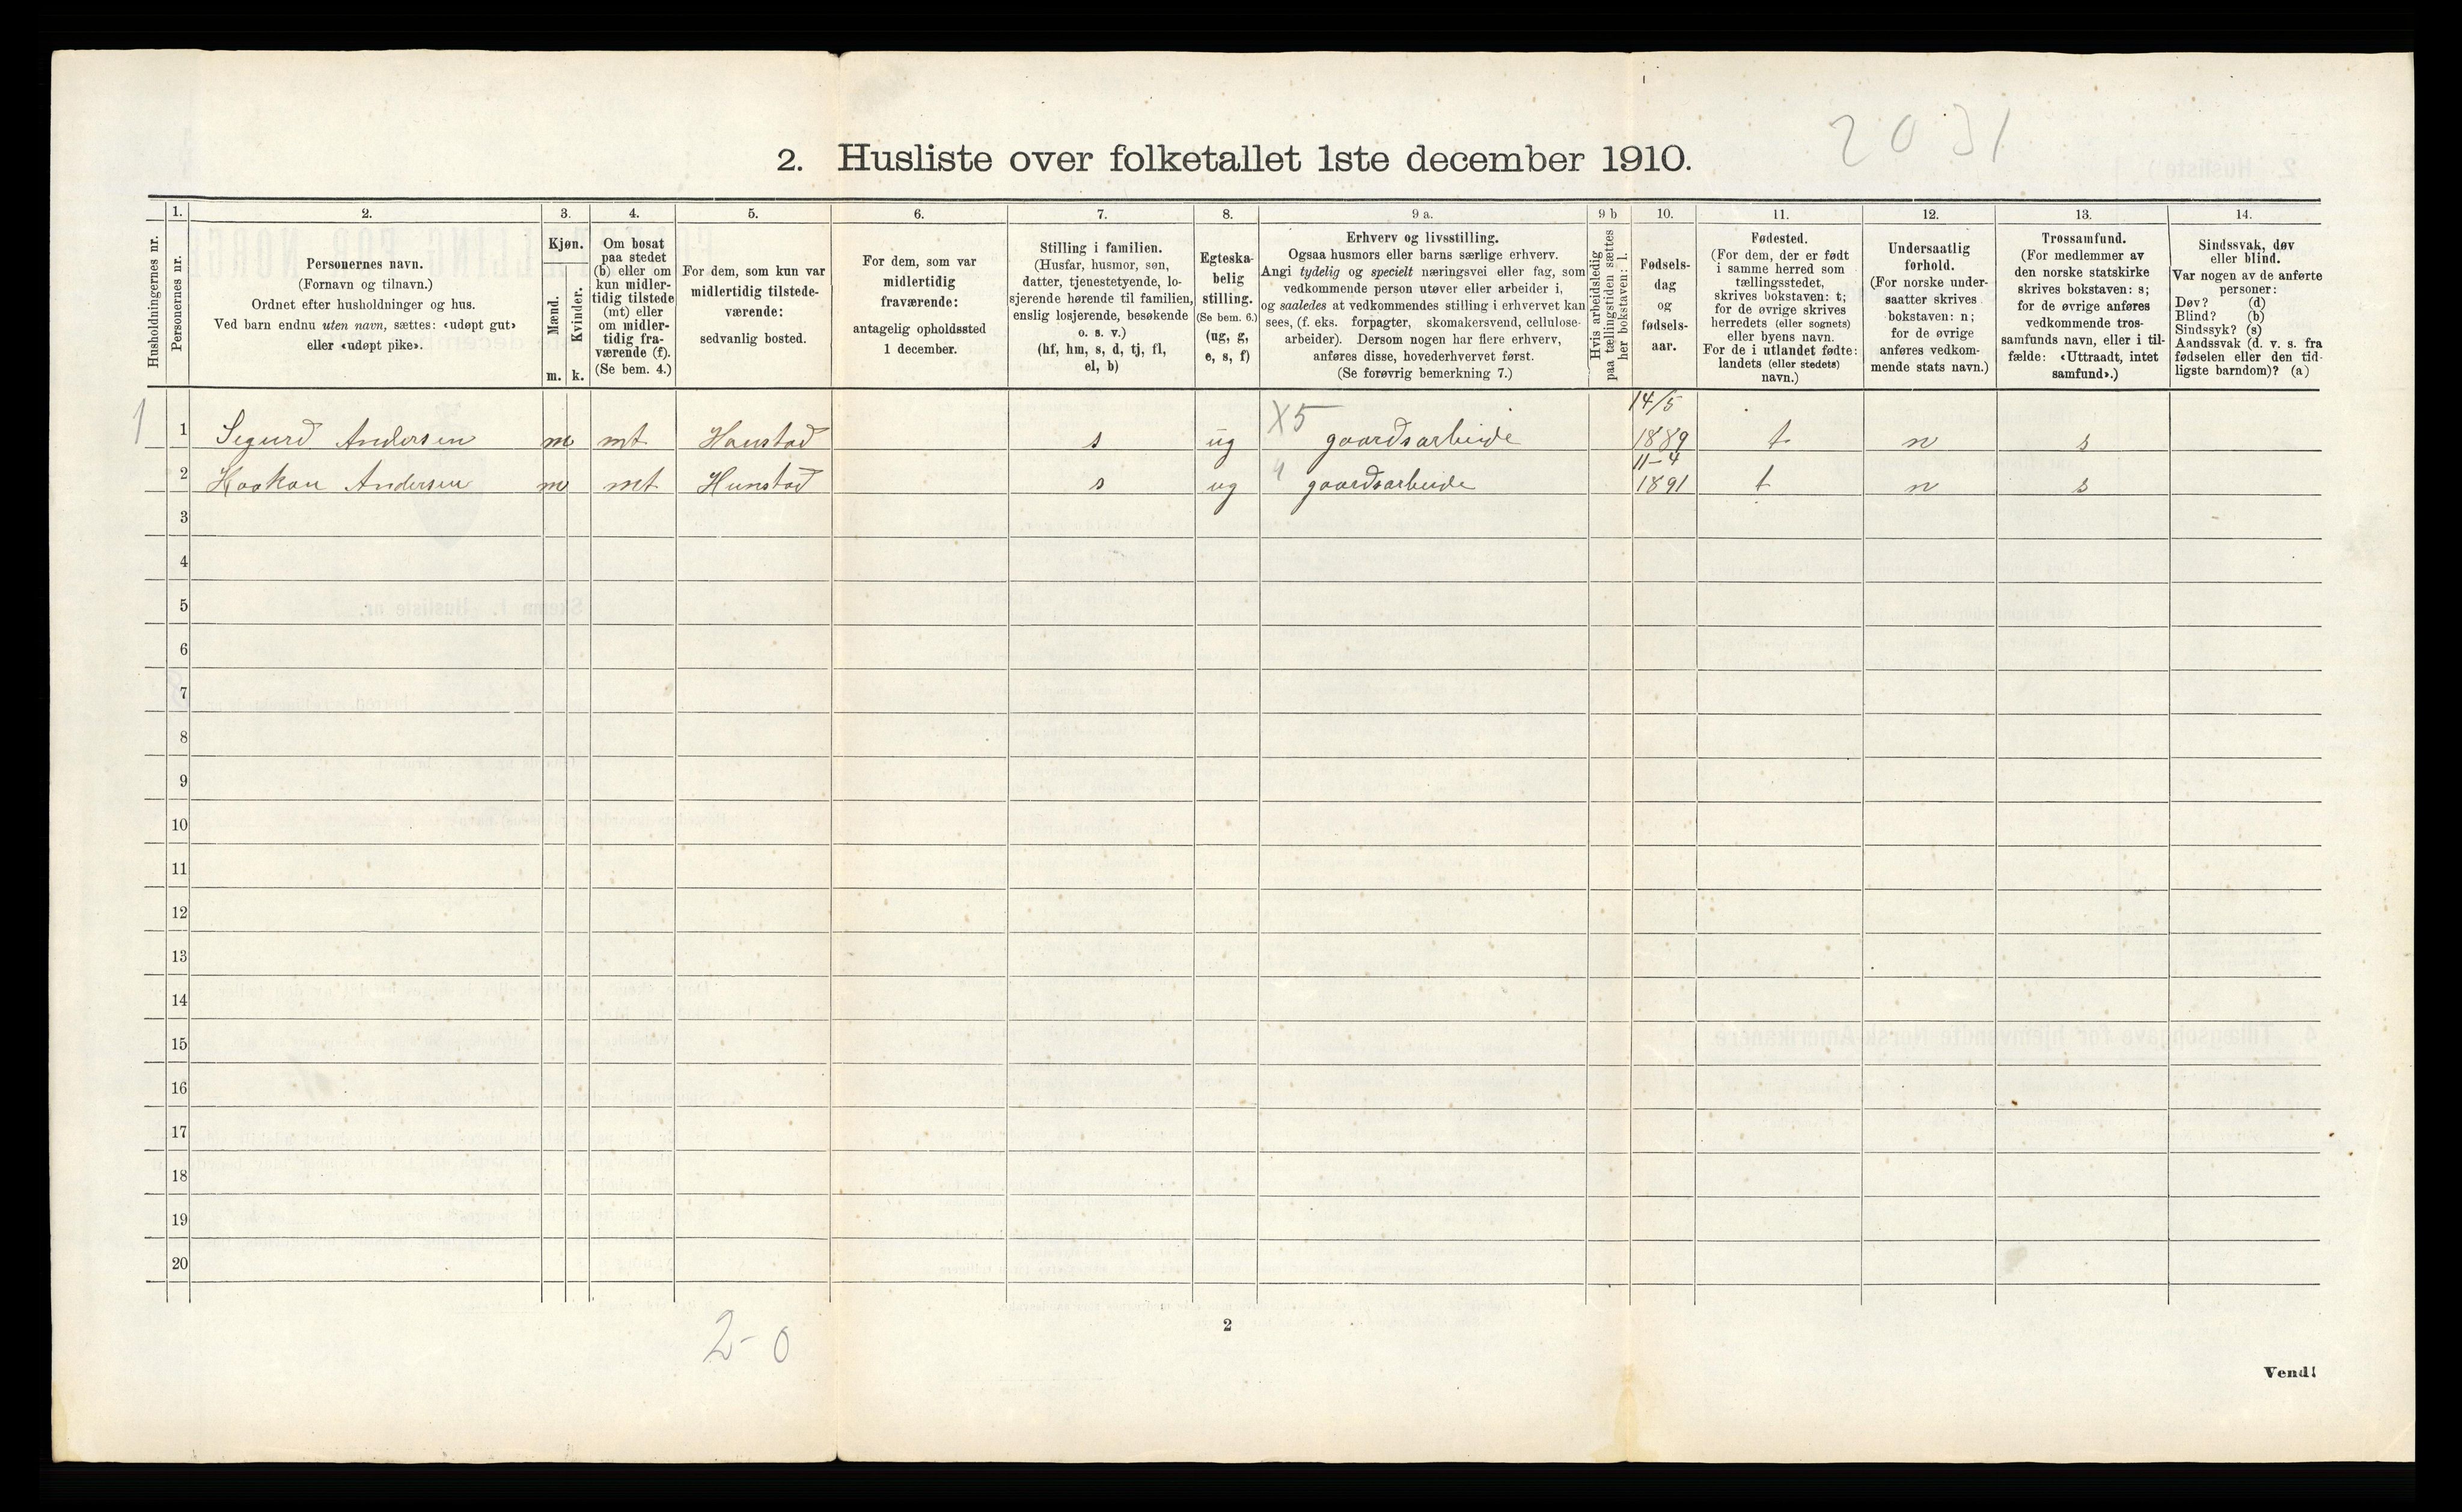 2031
2. Husliste over folketallet 1ste december 1910.
Husholdningernes nr.
1.
Personernes nr.
2.
Personernes navn.
(Fornavn og tilnavn.)
Ordnet efter husholdninger og hus.
Ved barn endnu uten navn, sættes: «udøpt gut»
eller «udøpt pike».
3.
Kjøn.
Mænd.
Kvinder.
m. k.
4.
Om bosat
paa stedet
(b) eller om
kun midler-
tidig tilstede
(mt) eller
om midler-
tidig fra-
værende (f).
(Se bem. 4.)
5.
For dem, som kun var
midlertidig tilstede-
værende:
sedvanlig bosted.
6.
For dem, som var
midlertidig
fraværende:
antagelig opholdssted
1 december.
7.
Stilling i familien.
(Husfar, husmor, søn,
datter, tjenestetyende, lo-
sjerende hørende til familien,
enslig losjerende, besøkende
o. s. v.)
(hf, hm, s, d, tj, fl,
el, b)
8.
Egteska-
belig
stilling.
(Se bem. 6.)
(ug, g,
e, s, f)
9 a.
Erhverv og livsstilling.
Ogsaa husmors eller barns særlige erhverv.
Angi tydelig og specielt næringsvei eller fag, som
vedkommende person utøver eller arbeider i,
og saaledes at vedkommendes stilling i erhvervet kan
sees, (f. eks. forpagter, skomakersvend, cellulose-
arbeider). Dersom nogen har flere erhverv,
anføres disse, hovederhvervet først.
(Se forøvrig bemerkning 7.)
9 b
Hvis arbeidsledig
paa tællingstiden sættes
her bokstaven: l.
10.
Fødsels-
dag
og
fødsels-
aar.
11.
Fødested.
(For dem, der er født
i samme herred som
tællingsstedet,
skrives bokstaven: t;
for de øvrige skrives
herredets (eller sognets)
eller byens navn.
For de i utlandet fødte:
landets (eller stedets)
navn.)
12.
Undersaatlig
forhold.
(For norske under-
saatter skrives
bokstaven: n;
for de øvrige
anføres vedkom-
mende stats navn.)
13.
Trossamfund.
(For medlemmer av
den norske statskirke
skrives bokstaven: s;
for de øvrige anføres
vedkommende tros-
samfunds navn, eller i til-
fælde: «Uttraadt, intet
samfund».)
14.
Sindssvak, døv
eller blind.
Var nogen av de anførte
personer:
Døv? (d)
Blind? (b)
Sindssyk? (s)
Aandssvak (d. v. s. fra
fødselen eller den tid-
ligste barndom)? (a)
1 1 Sigurd Andersen m mt Hanstad s ug X5 gaardsarbeide 14/5 1889 t n s
2 Haakon Andersen m mt Hunstad s ug 4 gaardsarbeide 11-4 1891 t n s
3
4
5
6
7
8
9
10
11
12
13
14
15
16
17
18
19
20
2-0
2
Vend!